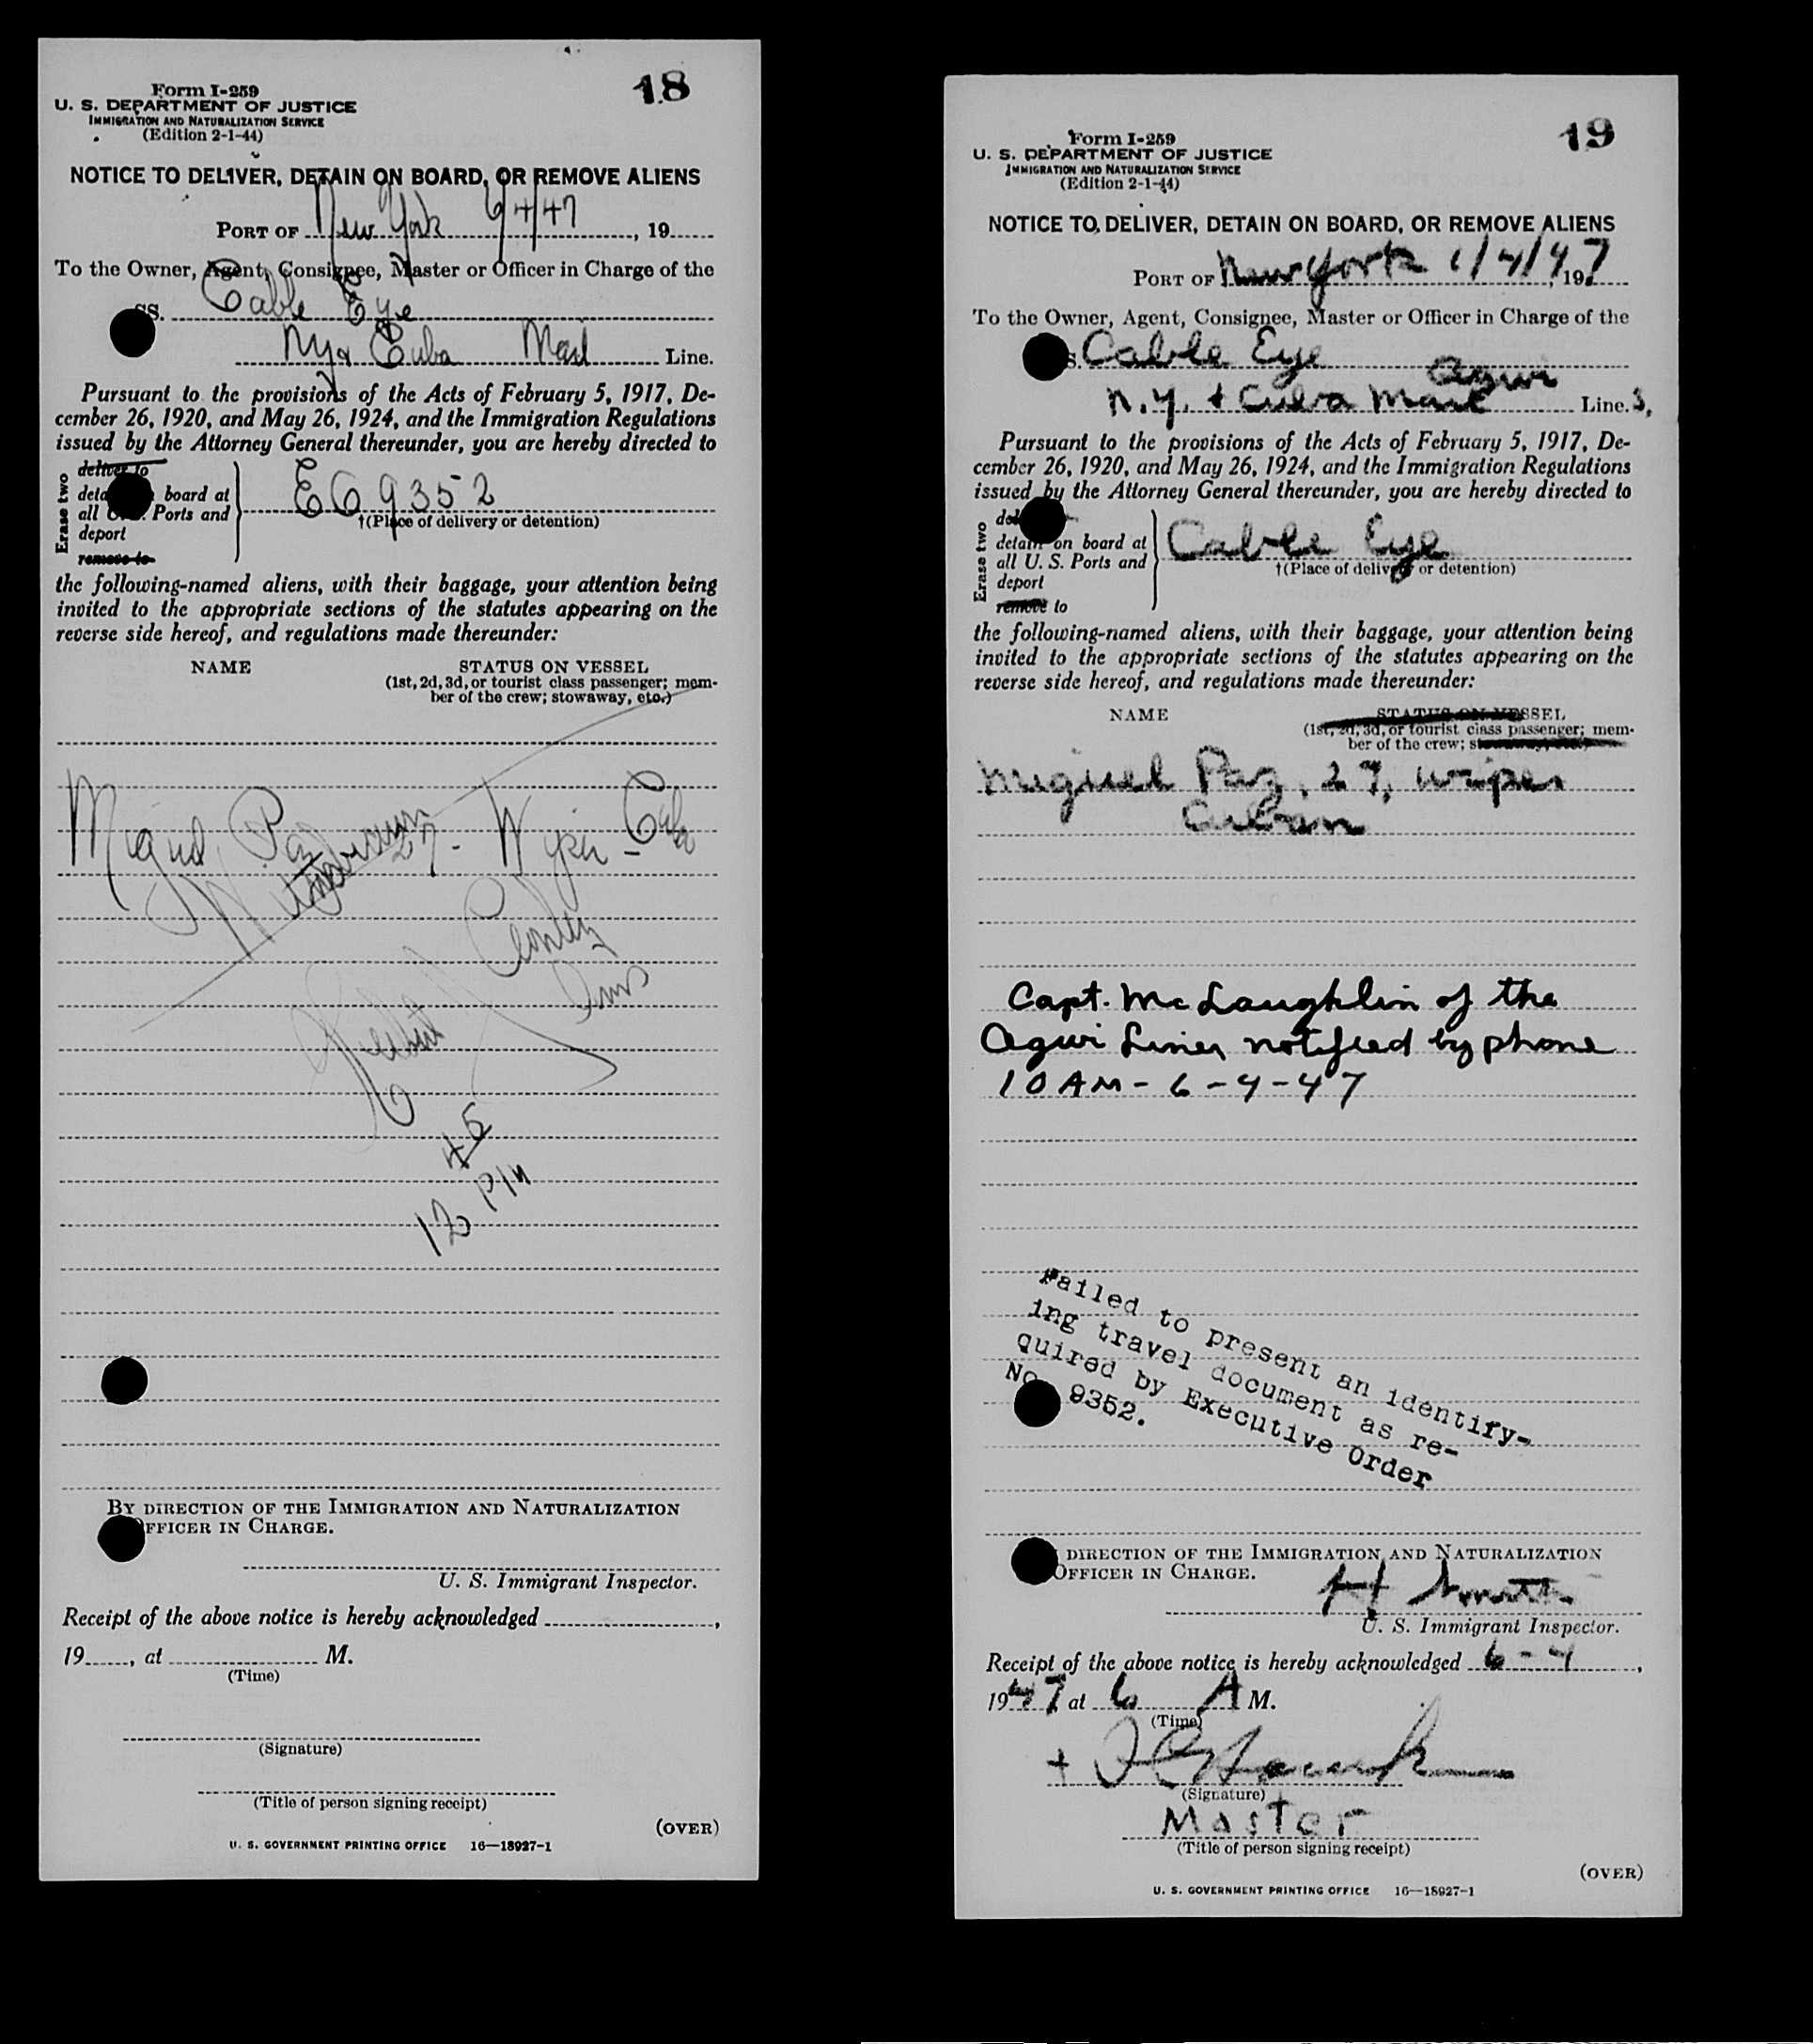 18
Form I-259
U. S. DEPARTMENT OF JUSTICE
IMMIGRATION AND NATURALIZATION SERVICE
(Edition 2-1-44)
NOTICE TO DELIVER, DETAIN ON BOARD, OR REMOVE ALIENS
PORT OF New York 6/4/47, 19
To the Owner, Agent, Consignee, Master or Officer in Charge of the
SS. Cable Eye
NY & Cuba Mail Line.
Pursuant to the provisions of the Acts of February 5, 1917, De-
cember 26, 1920, and May 26, 1924, and the Immigration Regulations
issued by the Attorney General thereunder, you are hereby directed to
Erase two
deliver to
board at
all Ports and
deport
remove to
EO 9352
†(Place of delivery or detention)
the following-named aliens, with their baggage, your attention being
invited to the appropriate sections of the statutes appearing on the
reverse side hereof, and regulations made thereunder:
NAME STATUS ON VESSEL
(1st, 2d, 3d, or tourist class passenger; mem-
ber of the crew; stowaway, etc.)
Miguel Paz 27 - Wiper - Cuba
45
12 PM
BY DIRECTION OF THE IMMIGRATION AND NATURALIZATION
OFFICER IN CHARGE.
U. S. Immigrant Inspector.
Receipt of the above notice is hereby acknowledged ,
19 , at M.
(Time)
(Signature)
(Title of person signing receipt)
(OVER)
U. S. GOVERNMENT PRINTING OFFICE 16—18927-1
19
Form I-259
U. S. DEPARTMENT OF JUSTICE
IMMIGRATION AND NATURALIZATION SERVICE
(Edition 2-1-44)
NOTICE TO DELIVER, DETAIN ON BOARD, OR REMOVE ALIENS
PORT OF New York 6/4/47, 19
To the Owner, Agent, Consignee, Master or Officer in Charge of the
S. Cable Eye
Agwi
N.Y. & Cuba Mail Line.s,
Pursuant to the provisions of the Acts of February 5, 1917, De-
cember 26, 1920, and May 26, 1924, and the Immigration Regulations
issued by the Attorney General thereunder, you are hereby directed to
Erase two
detain on board at
all U. S. Ports and
deport
remove to
Cable Eye
†(Place of delivery or detention)
the following-named aliens, with their baggage, your attention being
invited to the appropriate sections of the statutes appearing on the
reverse side hereof, and regulations made thereunder:
NAME STATUS ON VESSEL
(1st, 2d, 3d, or tourist class passenger; mem-
ber of the crew; stowaway, etc.)
Miguel Paz, 27, wiper
Cuban
Capt. McLaughlin of the
Agwi Lines notified by phone
10 AM - 6-4-47
Failed to present an identify-
ing travel document as re-
quired by Executive Order
No. 9352.
DIRECTION OF THE IMMIGRATION AND NATURALIZATION
OFFICER IN CHARGE.
Smith
U. S. Immigrant Inspector.
Receipt of the above notice is hereby acknowledged 6-4,
1947 at 6 A M.
(Time)
(Signature)
Master
(Title of person signing receipt)
(OVER)
U. S. GOVERNMENT PRINTING OFFICE 16—18927-1